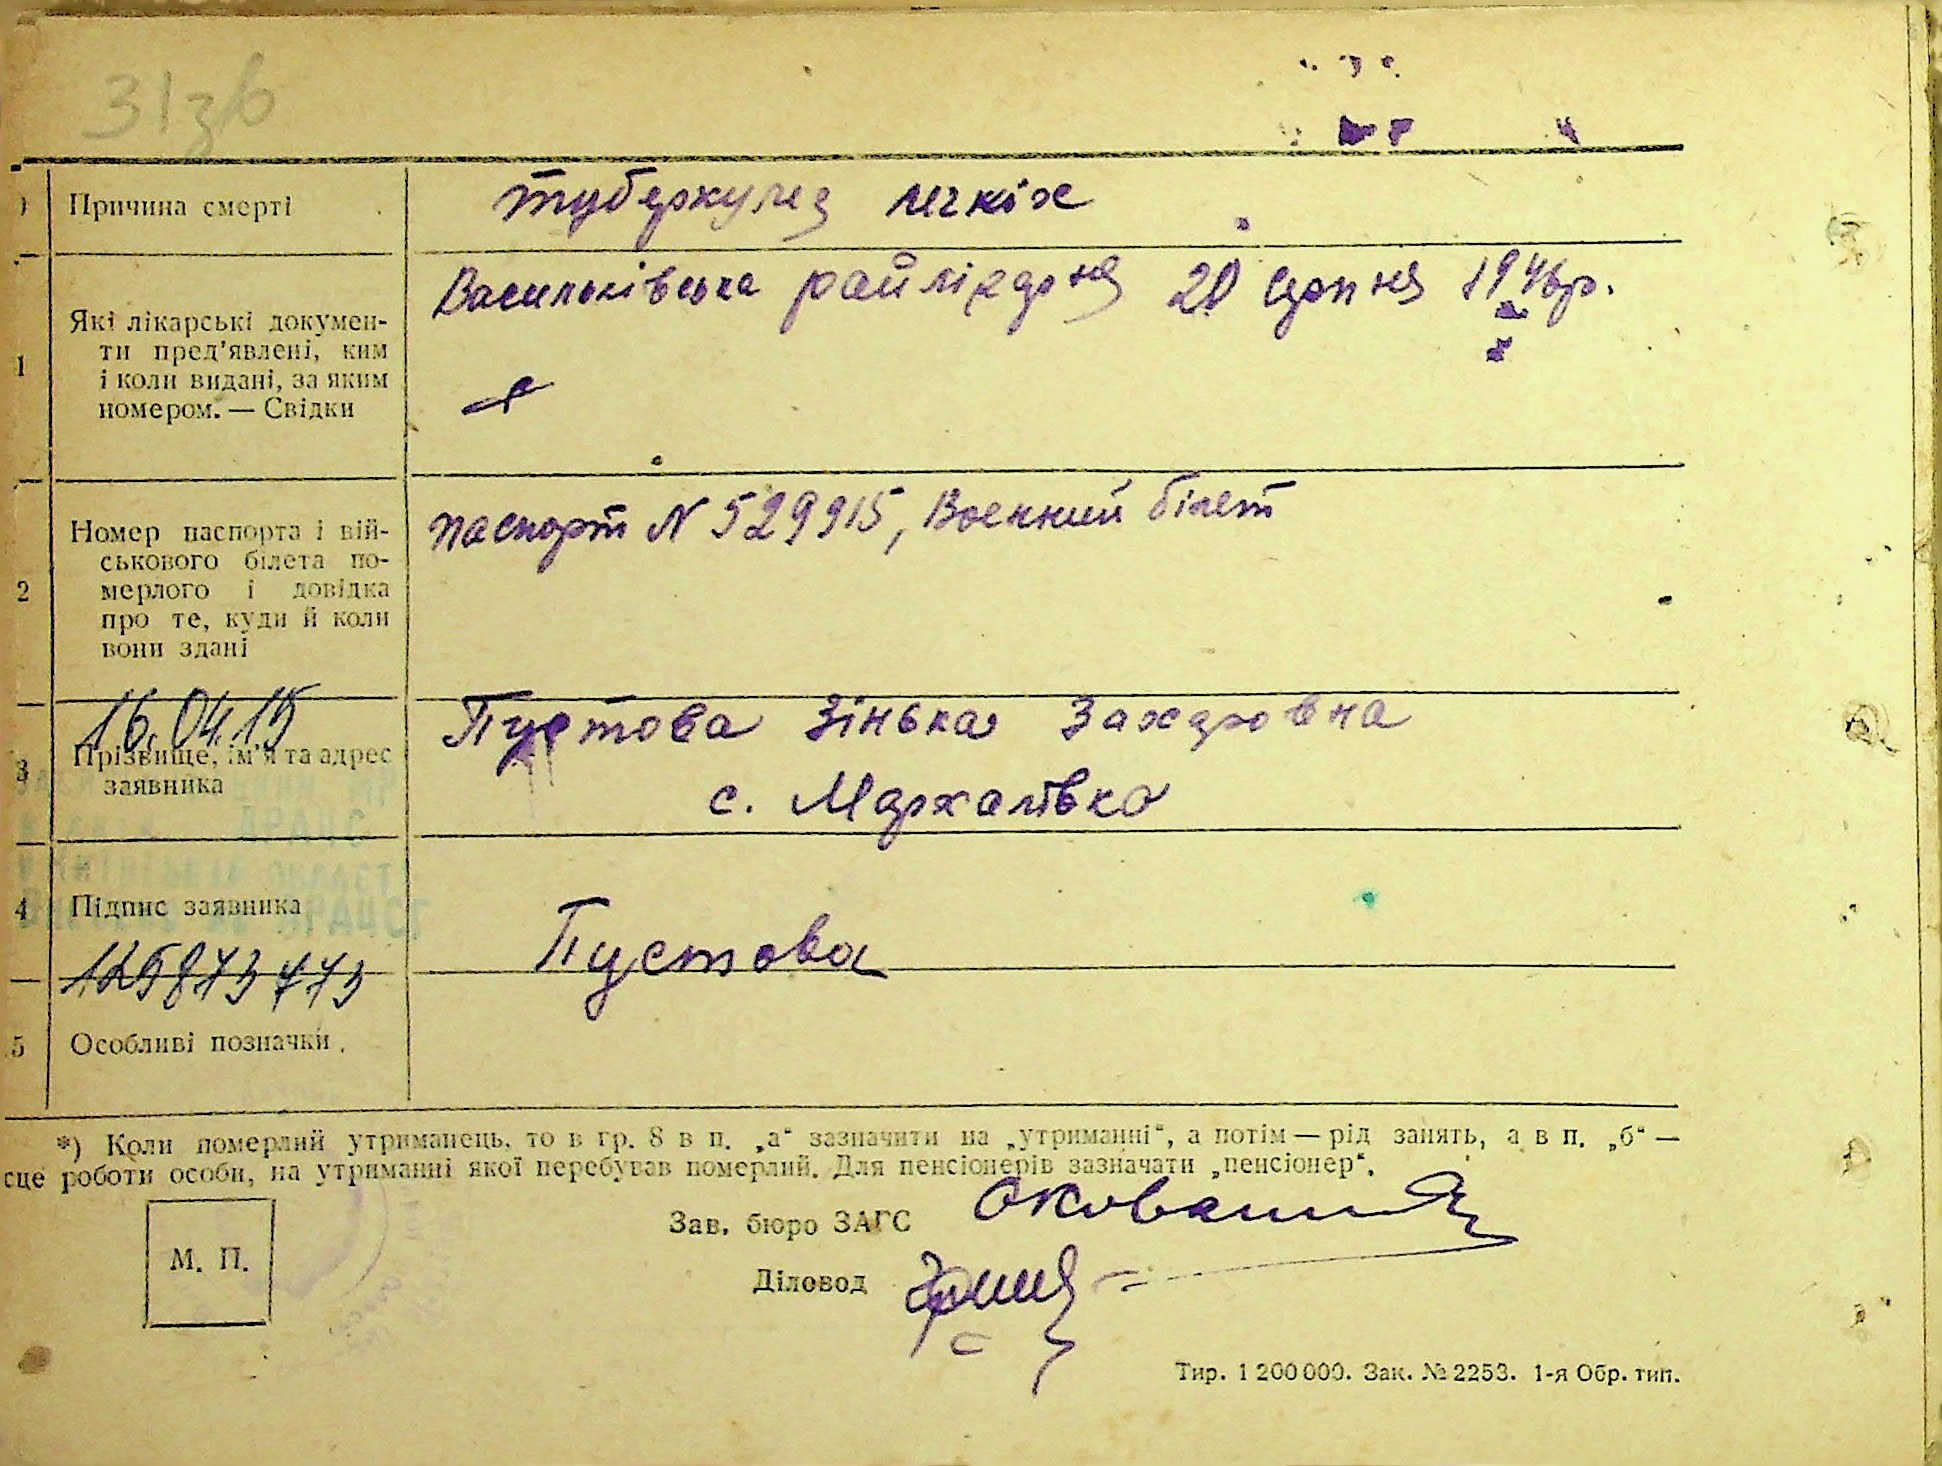 31зв
Причина смерті
туберкулез легкіх
1
Які лікарські докумен-
ти пред'явлені, ким
і коли видані, за яким
номером. — Свідки
Васильківська райлікарня 20 серпня 1946р.
2
Номер паспорта і вій-
ськового білета по-
мерлого і довідка
про те, куди й коли
вони здані
паспорт N 529915, Военний білет
16.04.15
3
Прізвище, ім'я та адрес
заявника
Пустова Зінька Захаровна
с. Мархалівка
4
Підпис заявника
Пустова
125873473
5
Особливі позначки
*) Коли померлий утриманець, то в гр. 8 в п. „а“ зазначити на „утриманні“, а потім — рід занять, а в п. „б“ —
сце роботи особи, на утриманні якої перебував померлий. Для пенсіонерів зазначати „пенсіонер“.
М. П.
Зав. бюро ЗАГС
Діловод
Тир. 1 200 000. Зак. № 2253. 1-я Обр. тип.